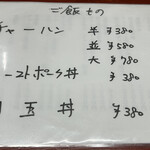 ご飯もの
チャーハン 半 ¥380
並 ¥580
大 ¥780
ーストポーク丼 ¥380
玉丼 ¥380